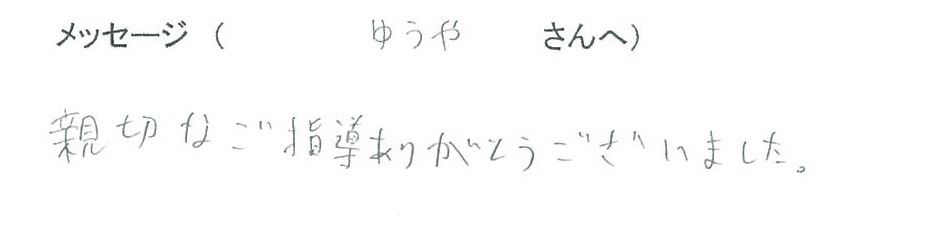 メッセージ（ ゆうや さんへ）
親切なご指導ありがとうございました。